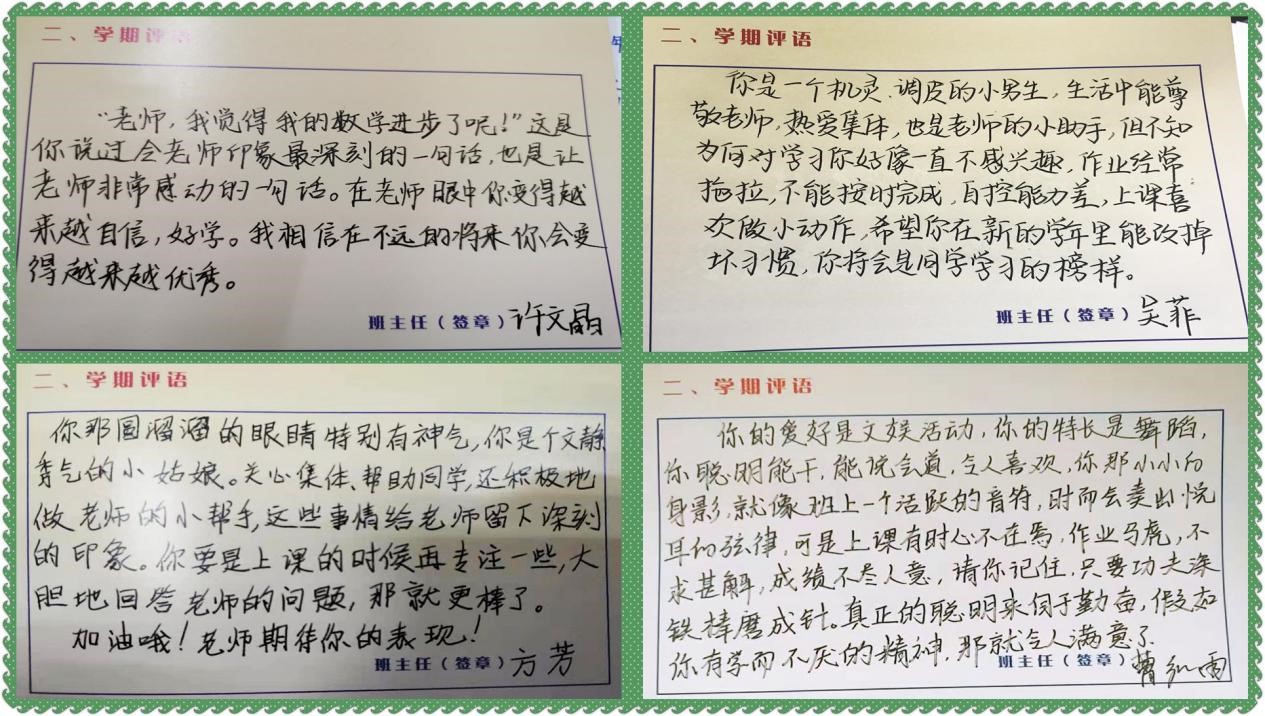 二、学期评语
“老师，我觉得我的数学进步了呢！”这是
你说过令老师印象最深刻的一句话，也是让
老师非常感动的一句话。在老师眼中你变得越
来越自信，好学。我相信在不远的将来你会变
得越来越优秀。
班主任（签章）许文晶
二、学期评语
你是一个机灵、调皮的小男生，生活中能尊
敬老师，热爱集体，也是老师的小助手，但不知
为何对学习你好像一直不感兴趣，作业经常
拖拉，不能按时完成，自控能力差，上课喜
欢做小动作，希望你在新的学年里能改掉
坏习惯，你将会是同学学习的榜样。
班主任（签章）吴菲
二、学期评语
你那圆溜溜的眼睛特别有神气，你是个文静
秀气的小姑娘。关心集体、帮助同学，还积极地
做老师的小帮手，这些事情给老师留下深刻
的印象。你要是上课的时候再专注一些，大
胆地回答老师的问题，那就更棒了。
加油哦！老师期待你的表现！
班主任（签章）方芳
二、学期评语
你的爱好是文娱活动，你的特长是舞蹈，
你聪明能干，能说会道，令人喜欢，你那小小的
身影，就像班上一个活跃的音符，时而会奏出悦
耳的弦律，可是上课有时心不在焉，作业马虎，不
求甚解，成绩不尽人意，请你记住，只要功夫深
铁棒磨成针。真正的聪明来伺于勤奋，假如
你有学而不厌的精神，那就令人满意了
班主任（签章）曹红雨